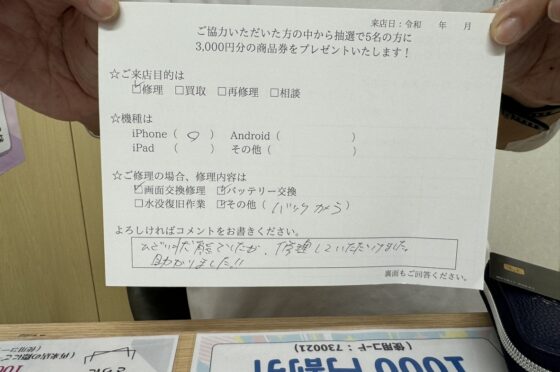 来店日：令和　年　月
ご協力いただいた方の中から抽選で5名の方に
3,000円分の商品券をプレゼントいたします！
☆ご来店目的は
☑修理 □買取 □再修理 □相談
☆機種は
iPhone（ 9 ） Android（ ）
iPad（ ） その他（ ）
☆ご修理の場合、修理内容は
☑画面交換修理 ☑バッテリー交換
□水没復旧作業 ☑その他（バックカメラ）
よろしければコメントをお書きください。
ひどい状態でしたが、修理していただけました。
助かりました!!
裏面もご回答ください。
（使用コード：730021）
1000円割引